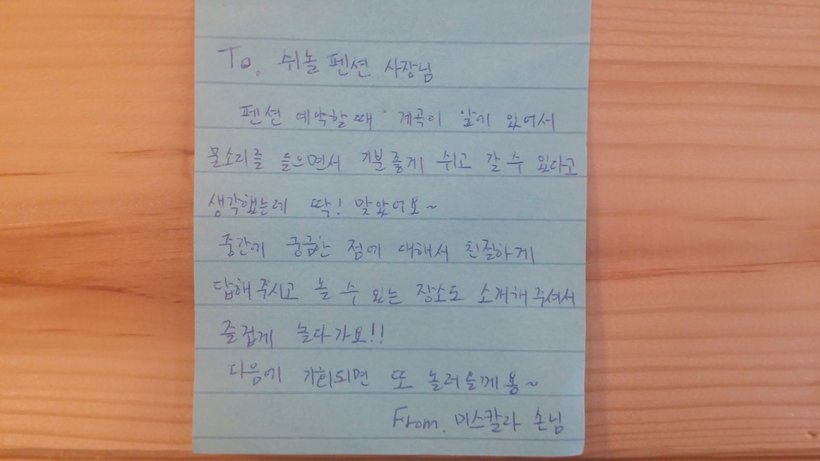 To. 쉬놀 펜션 사장님
펜션 예약할때 계곡이 앞에 있어서
물소리를 들으면서 기분좋게 쉬고 갈 수 있다고
생각했는데 딱! 맞았어요~
중간에 궁금한 점에 대해서 친절하게
답해주시고 놀 수 있는 장소도 소개해주셔서
즐겁게 놀다가요!!
다음에 기회되면 또 놀러올게용~
From. 미스칼라 손님